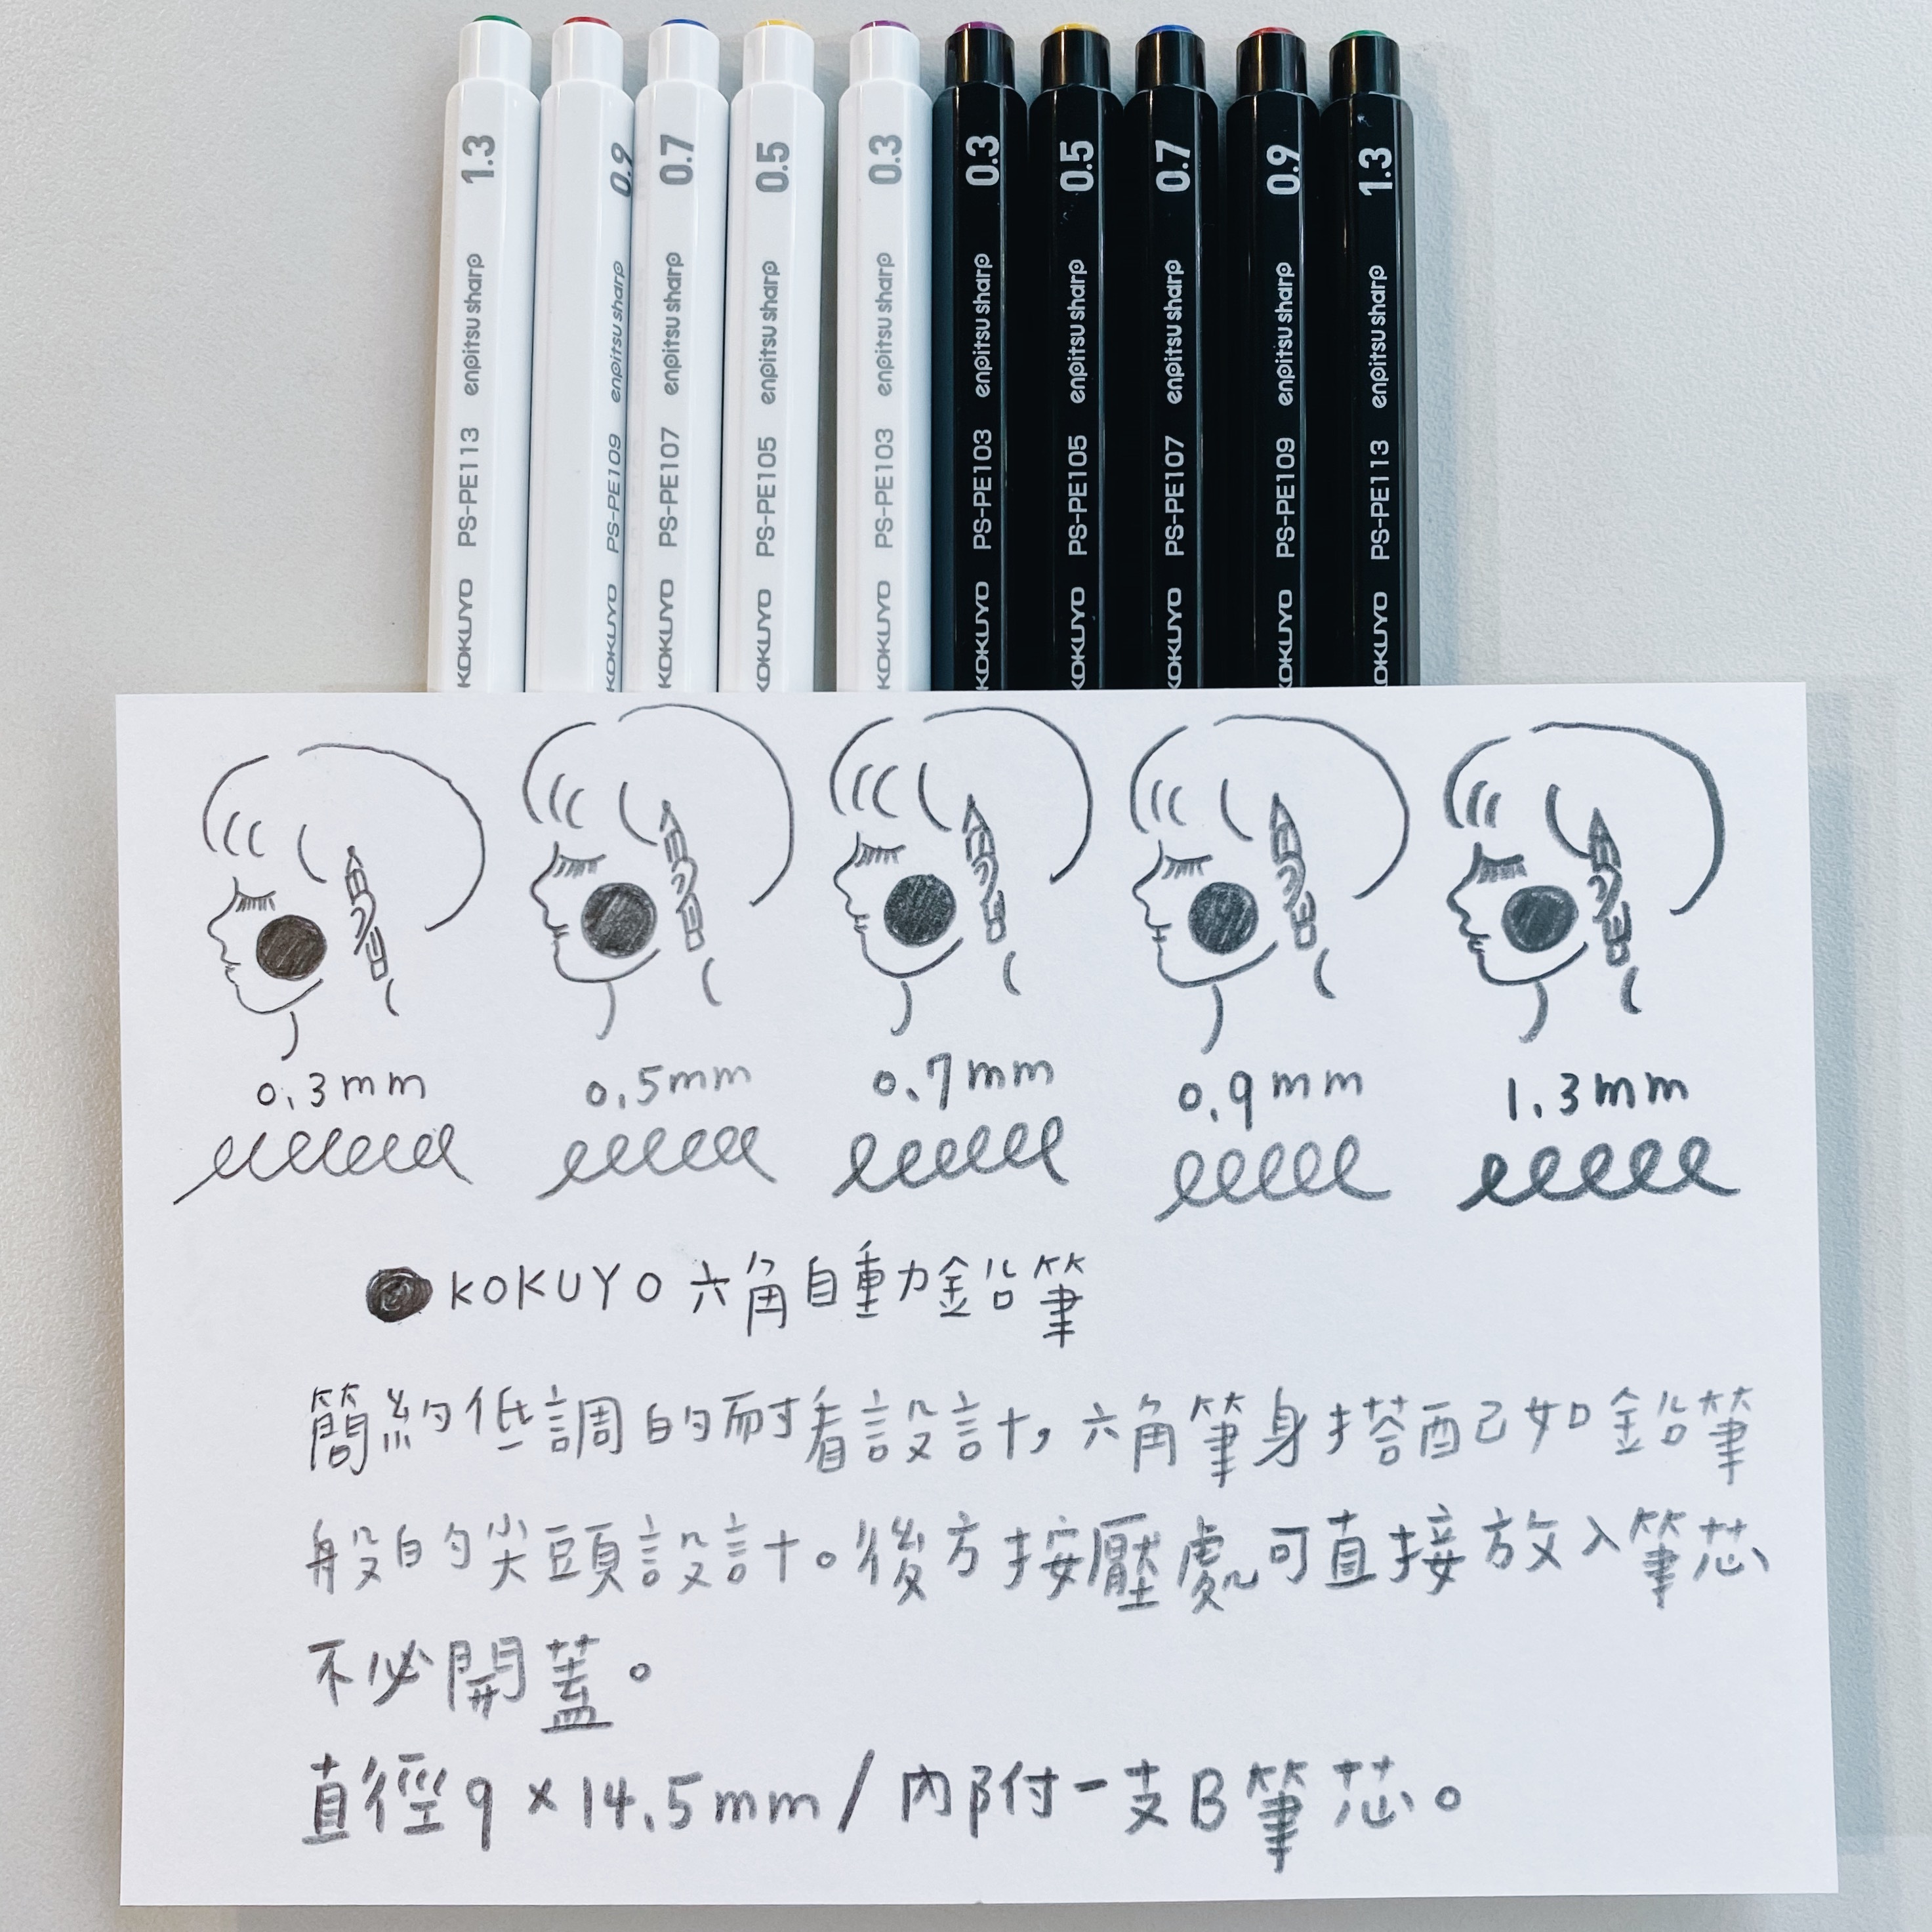 1.3 enpitsu sharp PS-PE113 KOKUYO
0.9 enpitsu sharp PS-PE109 KOKUYO
0.7 enpitsu sharp PS-PE107 KOKUYO
0.5 enpitsu sharp PS-PE105 KOKUYO
0.3 enpitsu sharp PS-PE103 KOKUYO
0.3 enpitsu sharp PS-PE103 KOKUYO
0.5 enpitsu sharp PS-PE105 KOKUYO
0.7 enpitsu sharp PS-PE107 KOKUYO
0.9 enpitsu sharp PS-PE109 KOKUYO
1.3 enpitsu sharp PS-PE113 KOKUYO
0.3mm 0.5mm 0.7mm 0.9mm 1.3mm
KOKUYO 六角自動鉛筆
簡約低調的耐看設計，六角筆身搭配如鉛筆
般的尖頭設計。後方按壓處可直接放入筆芯
不必開蓋。
直徑9×14.5mm/內附一支B筆芯。